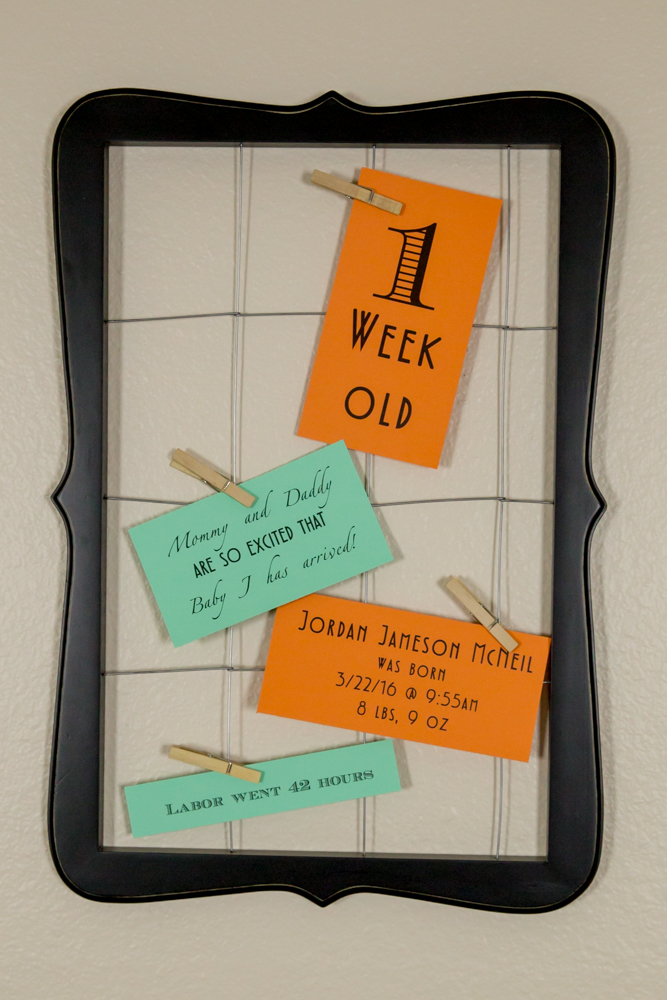 1
WEEK
OLD
Mommy and Daddy
ARE SO EXCITED THAT
Baby J has arrived!
JORDAN JAMESON MCNEIL
WAS BORN
3/22/16 @ 9:55AM
8 LBS, 9 OZ
LABOR WENT 42 HOURS